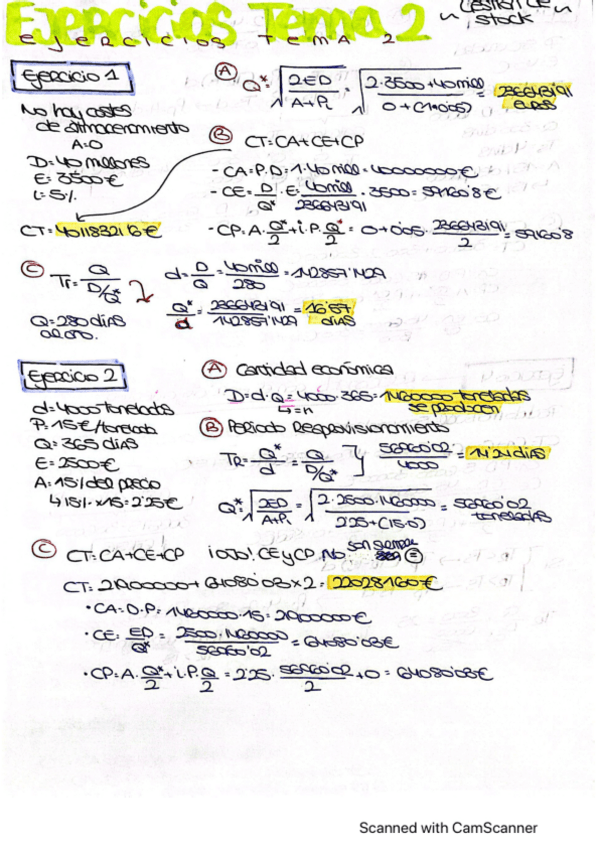 Ejercicios Tema 2
Gestión de stock
EJERCICIOS TEMA 2
Ejercicio 1
No hay costes
de almacenamiento
A=0
D=40 millones
E=3500€
i=5%
CT=40118321'6€
A Q*=√(2ED/A+Pi)=√(2·3500+40mill/0+(1·0'05))=2366431'91 euros
B CT=CA+CE+CP
-CA=P·D=1·40mill=40000000€
-CE=D/Q*·E=40mill/2366431'91·3500=59160'8€
-CP=A·Q*/2+i·P·Q*/2=0+0'05·2366431'91/2=59160'8
C Tr=Q/D/Q*
Q=280 días
d=D/Q=40mill/280=142857'1429
Q*/d=2366431'91/142857'1429=16'57 días
Ejercicio 2
d=4000 toneladas
P=15€/tonelada
Q=365 días
E=2500€
A=15% del precio
↳15%·×15=2'25€
A Cantidad económica
D=d·Q=4000·365=1460000 toneladas
↳=n
se producen
B Periodo Reaprovisionamiento
TR=Q*/d=Q/D/Q* ] 56960'02/4000=14'24 días
Q*=√(2ED/A+Pi)=√(2·2500·1460000/2'25+(15·0))=56960'02 toneladas
C CT=CA+CE+CP ¡ojo! CE y CP No son siempre =
CT=21900000+64080'03×2=22028160€
·CA=D·P=1460000·15=21900000€
·CE=ED/Q*=2500·1460000/56960'02=64080'03€
·CP=A·Q*/2+i·P·Q/2=2'25·56960'02/2+0=64080'03€
Scanned with CamScanner